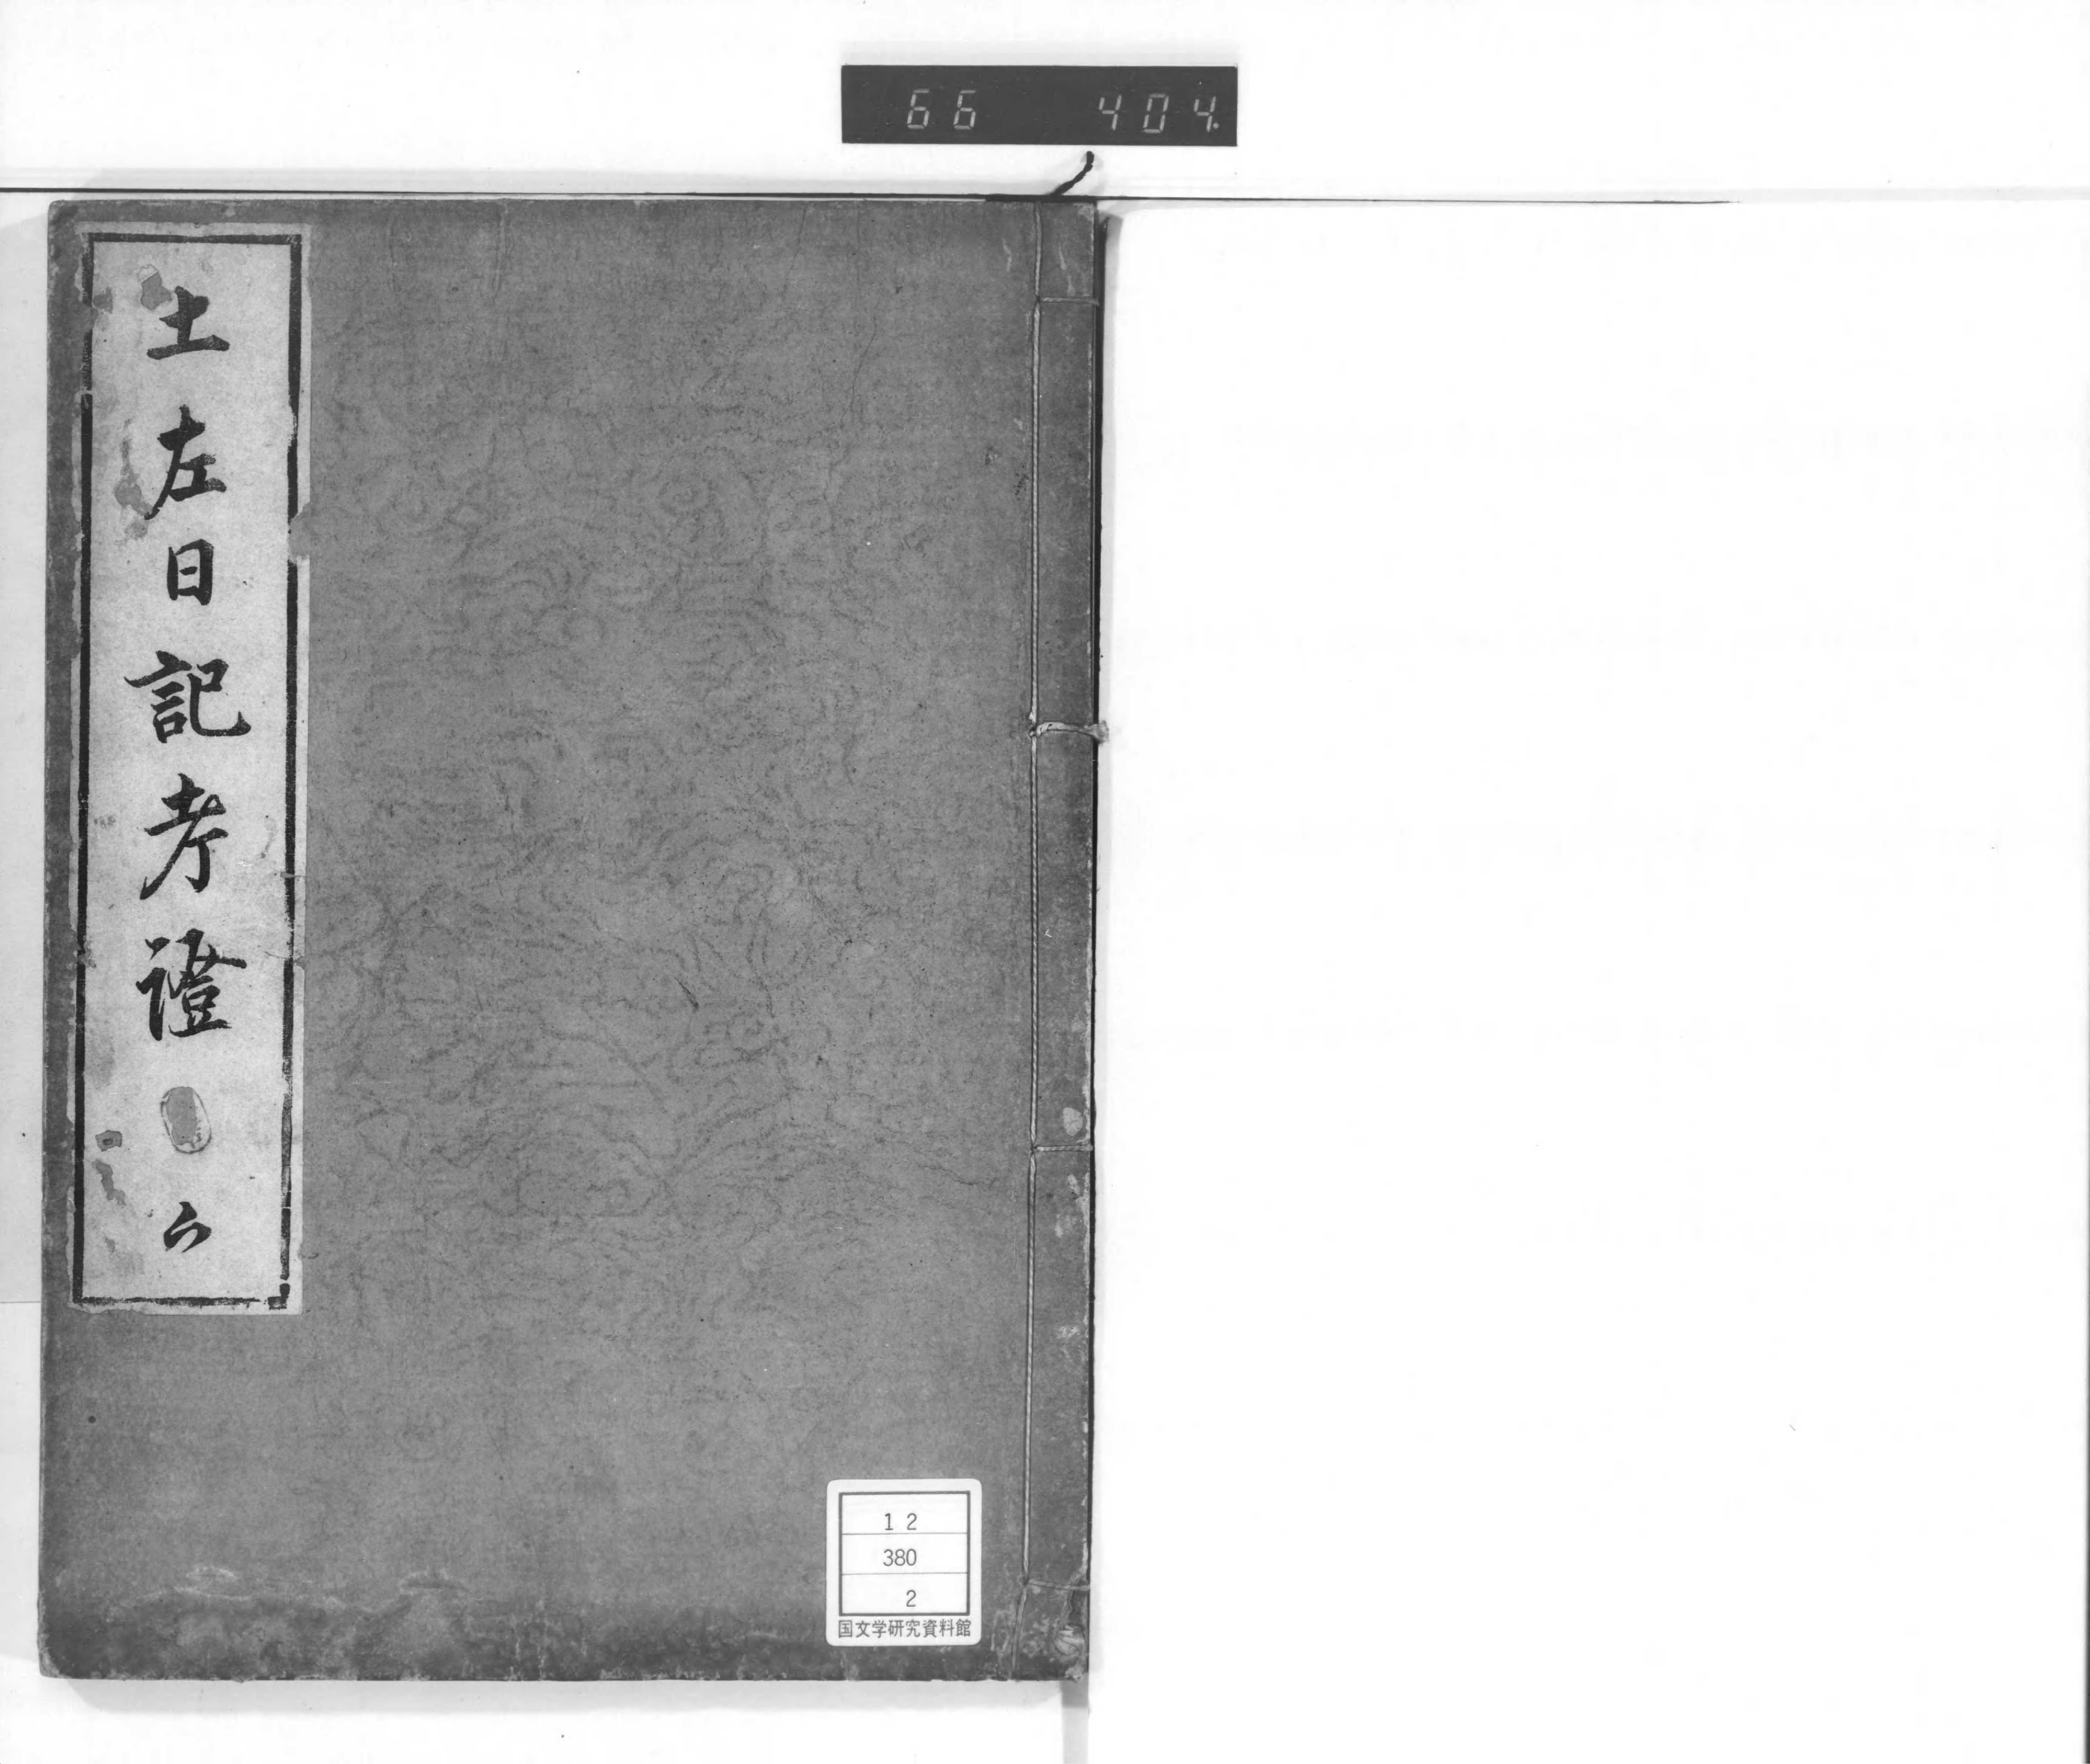 66 404.
土左日記考證
12
380
2
国文学研究資料館